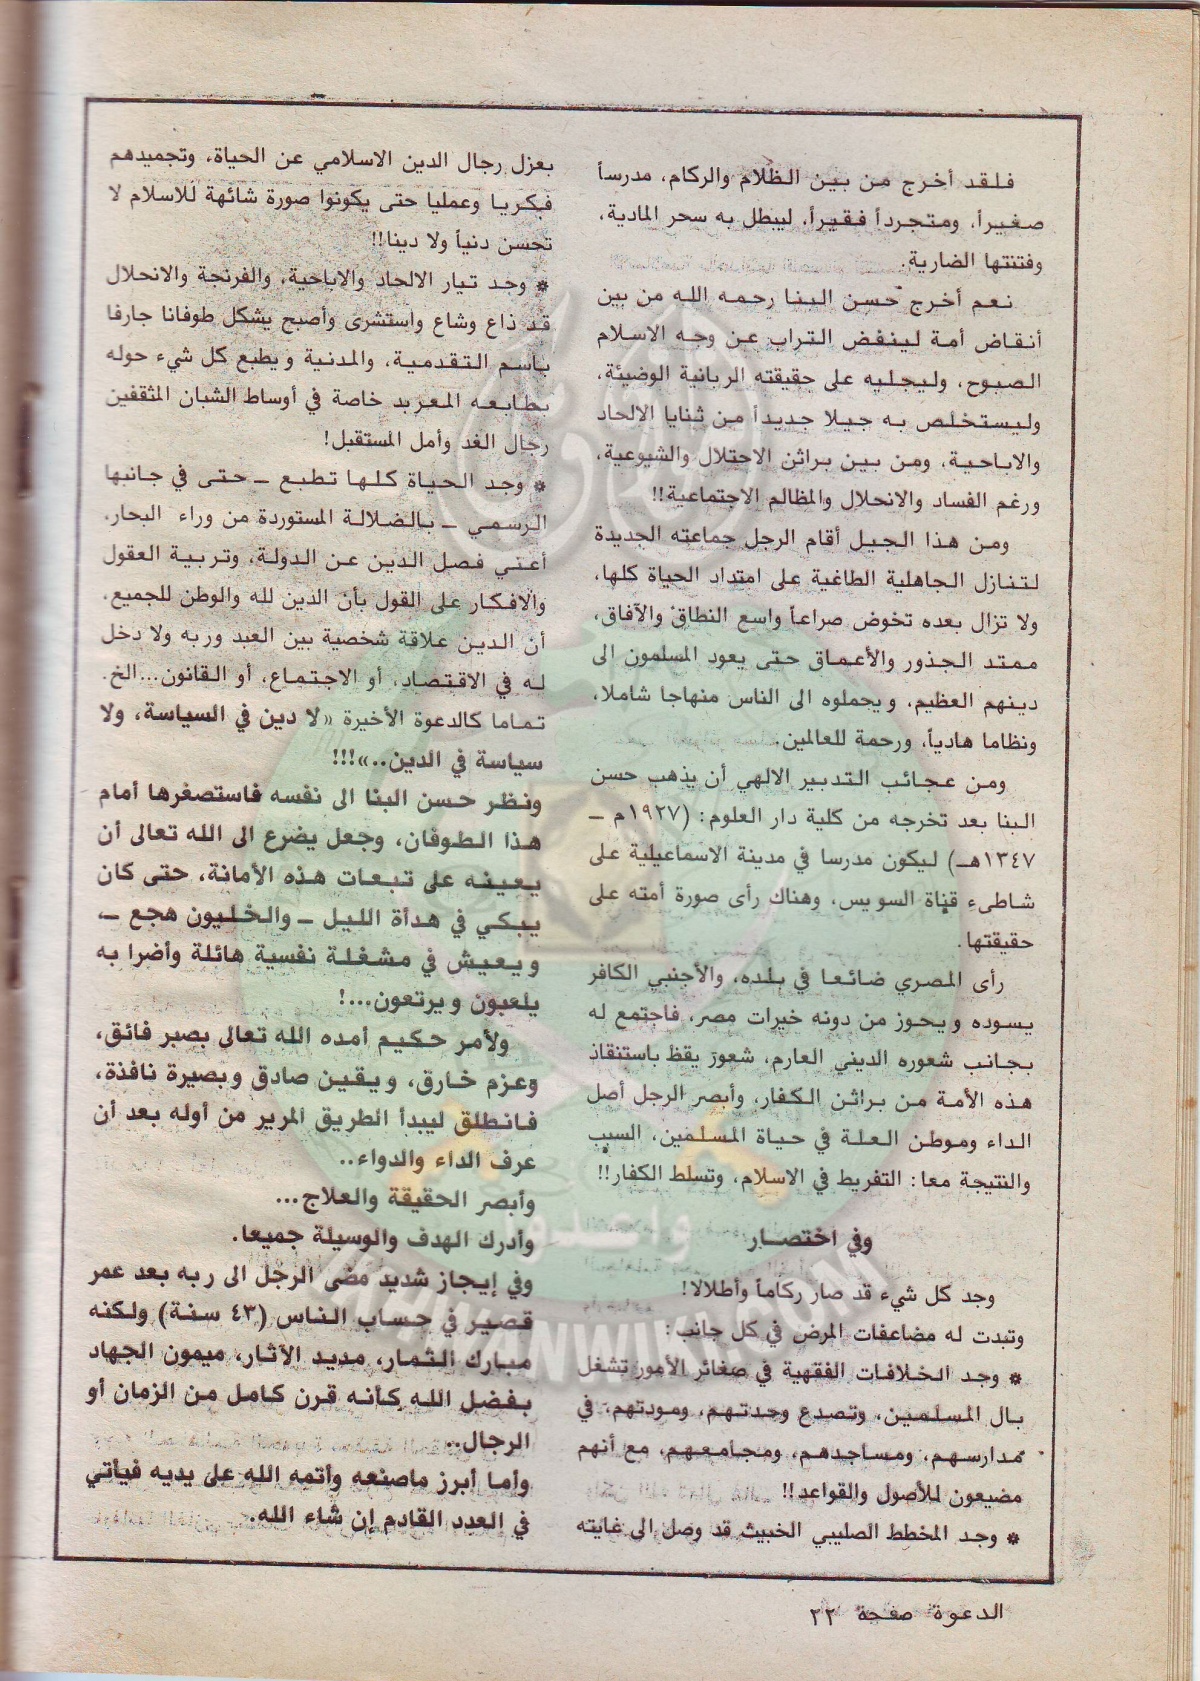 فلقد أخرج من بين الظلام والركام، مدرسأ
صغيرأ، ومتجردأ فقيرأ، ليبطل به سحر المادية،
وفتنتها الضارية.
نعم أخرج حسن البنا رحمه الله من بين
أنقاض أمة لينفض التراب عن وجه الاسلام
الصبوح، وليجليه على حقيقته الربانية الوضيئة،
وليستخلص به جيلا جديدأ من ثنايا الالحاد
والاباحية، ومن بين براثن الاحتلال والشيوعية،
ورغم الفساد والانحلال والمظالم الاجتماعية!!
ومن هذا الجيل أقام الرجل جماعته الجديدة
لتنازل الجاهلية الطاغية على امتداد الحياة كلها،
ولا تزال بعده تخوض صراعأ واسع النطاق والآفاق،
ممتد الجذور والأعماق حتى يعود المسلمون الى
دينهم العظيم، ويحملوه الى الناس منهاجا شاملا،
ونظاما هاديأ، ورحمة للعالمين.
ومن عجائب التدبير الالهي أن يذهب حسن
البنا بعد تخرجه من كلية دار العلوم: (١٩٢٧م ــ
١٣٤٧هـ) ليكون مدرسا في مدينة الاسماعيلية على
شاطىء قناة السويس، وهناك رأى صورة أمته على
حقيقتها.
رأى المصري ضائعا في بلده، والأجنبي الكافر
يسوده ويحوز من دونه خيرات مصر، فاجتمع له
بجانب شعوره الديني العارم، شعور يقظ باستنقاذ
هذه الأمة من براثن الكفار، وأبصر الرجل أصل
الداء وموطن العلة في حياة المسلمين، السبب
والنتيجة معا: التفريط في الاسلام، وتسلط الكفار!!
وفي اختصار
وجد كل شيء قد صار ركاماً وأطلالا!
وتبدت له مضاعفات المرض في كل جانب:
* وجد الخلافات الفقهية في صغائر الأمور تشغل
بال المسلمين، وتصدع وحدتهم، ومودتهم، في
مدارسهم، ومساجدهم، ومجامعهم، مع أنهم
مضيعون للأصول والقواعد!!
* وجد المخطط الصليبي الخبيث قد وصل الى غايته
بعزل رجال الدين الاسلامي عن الحياة، وتجميدهم
فكريا وعمليا حتى يكونوا صورة شائهة للاسلام لا
تحسن دنيأ ولا دينا!!
* وجد تيار الالحاد والاباحية، والفرنجة والانحلال
قد ذاع وشاع واستشرى وأصبح يشكل طوفانا جارفا
باسم التقدمية، والمدنية ويطبع كل شيء حوله
بطابعه المعربد خاصة في أوساط الشبان المثقفين
رجال الغد وأمل المستقبل!
* وجد الحياة كلها تطبع ــ حتى في جانبها
الرسمي ــ بالضلالة المستوردة من وراء البحار.
أعني فصل الدين عن الدولة، وتربية العقول
والافكار على القول بأن الدين لله والوطن للجميع.
أن الدين علاقة شخصية بين العبد وربه ولا دخل
له في الاقتصاد، أو الاجتماع، أو القانون...الخ.
تماما كالدعوة الأخيرة «لا دين في السياسة، ولا
سياسة في الدين..»!!!
ونظر حسن البنا الى نفسه فاستصغرها أمام
هذا الطوفان، وجعل يضرع الى الله تعالى أن
يعينه على تبعات هذه الأمانة، حتى كان
يبكي في هدأة الليل ــ والخليون هجع ــ،
ويعيش في مشغلة نفسية هائلة وأضرابه
يلعبون ويرتعون...!
ولأمر حكيم أمده الله تعالى بصبر فائق،
وعزم خارق، ويقين صادق وبصيرة نافذة،
فانطلق ليبدأ الطريق المرير من أوله بعد أن
عرف الداء والدواء..
وأبصر الحقيقة والعلاج...
وأدرك الهدف والوسيلة جميعا.
وفي إيجاز شديد مضى الرجل الى ربه بعد عمر
قصير في حساب الناس (٤٣ سنة) ولكنه
مبارك الثمار، مديد الآثار، ميمون الجهاد
بفضل الله كأنه قرن كامل من الزمان أو
الرجال..
وأما أبرز ماصنعه وأتمه الله على يديه فيأتي
في العدد القادم إن شاء الله.
الدعوة صفحة ٢٢